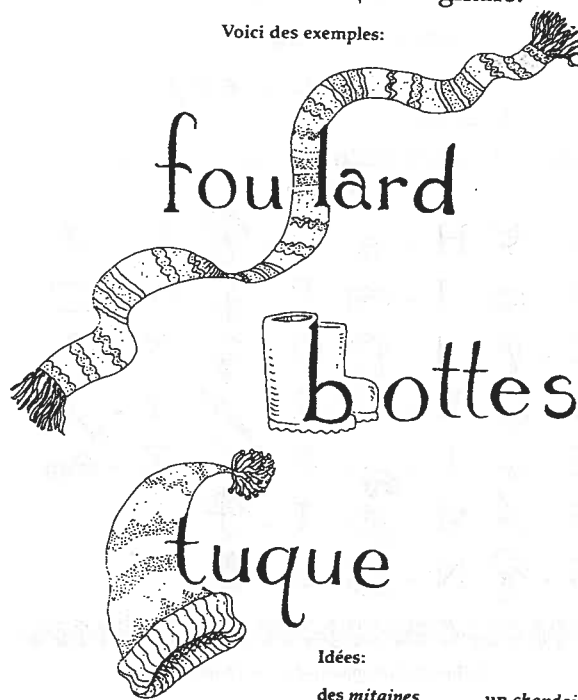 Voici des exemples:
foulard
bottes
tuque
Idées:
des mitaines